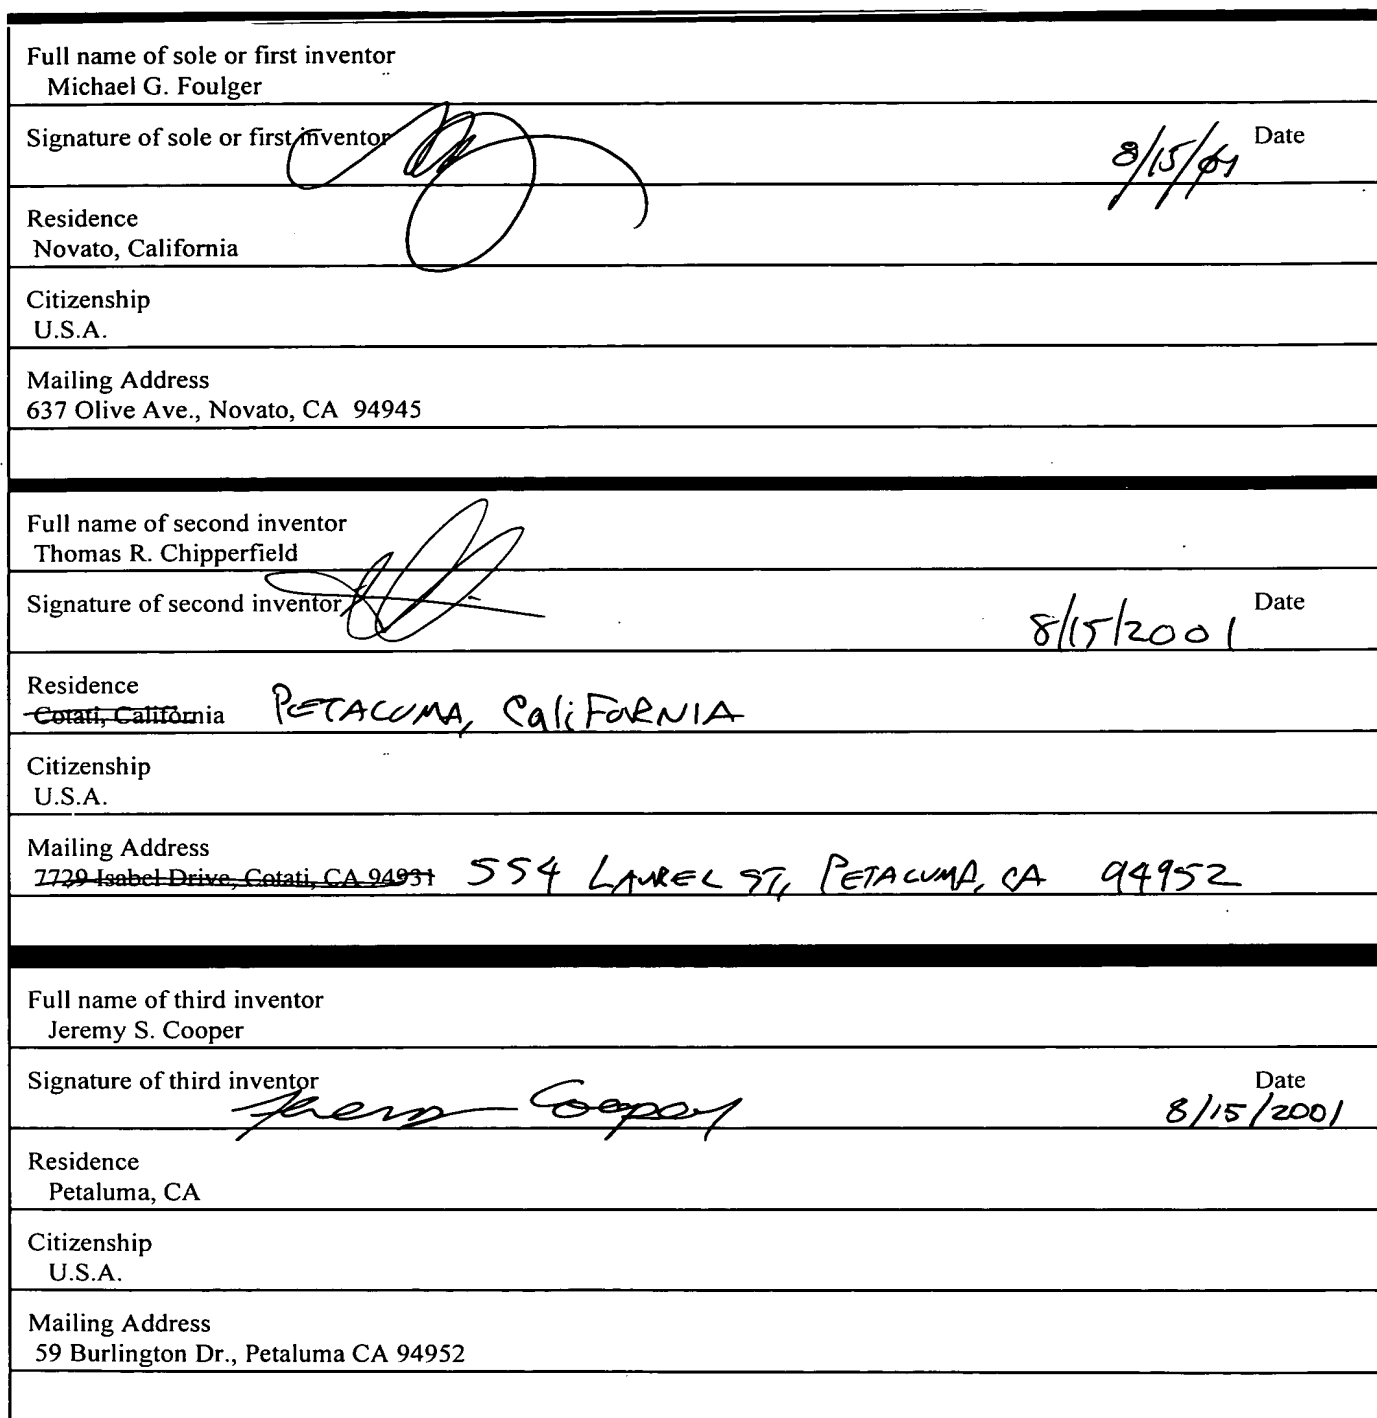 Full name of sole or first inventor
Michael G. Foulger
Signature of sole or first inventor
Date
8/15/01
Residence
Novato, California
Citizenship
U.S.A.
Mailing Address
637 Olive Ave., Novato, CA 94945
Full name of second inventor
Thomas R. Chipperfield
Signature of second inventor
Date
8/15/2001
Residence
Cotati, California PETALUMA, CaliFORNIA
Citizenship
U.S.A.
Mailing Address
7729 Isabel Drive, Cotati, CA 94931 554 LAUREL ST, PETALUMA, CA 94952
Full name of third inventor
Jeremy S. Cooper
Signature of third inventor
Date
Jeremy Cooper 8/15/2001
Residence
Petaluma, CA
Citizenship
U.S.A.
Mailing Address
59 Burlington Dr., Petaluma CA 94952